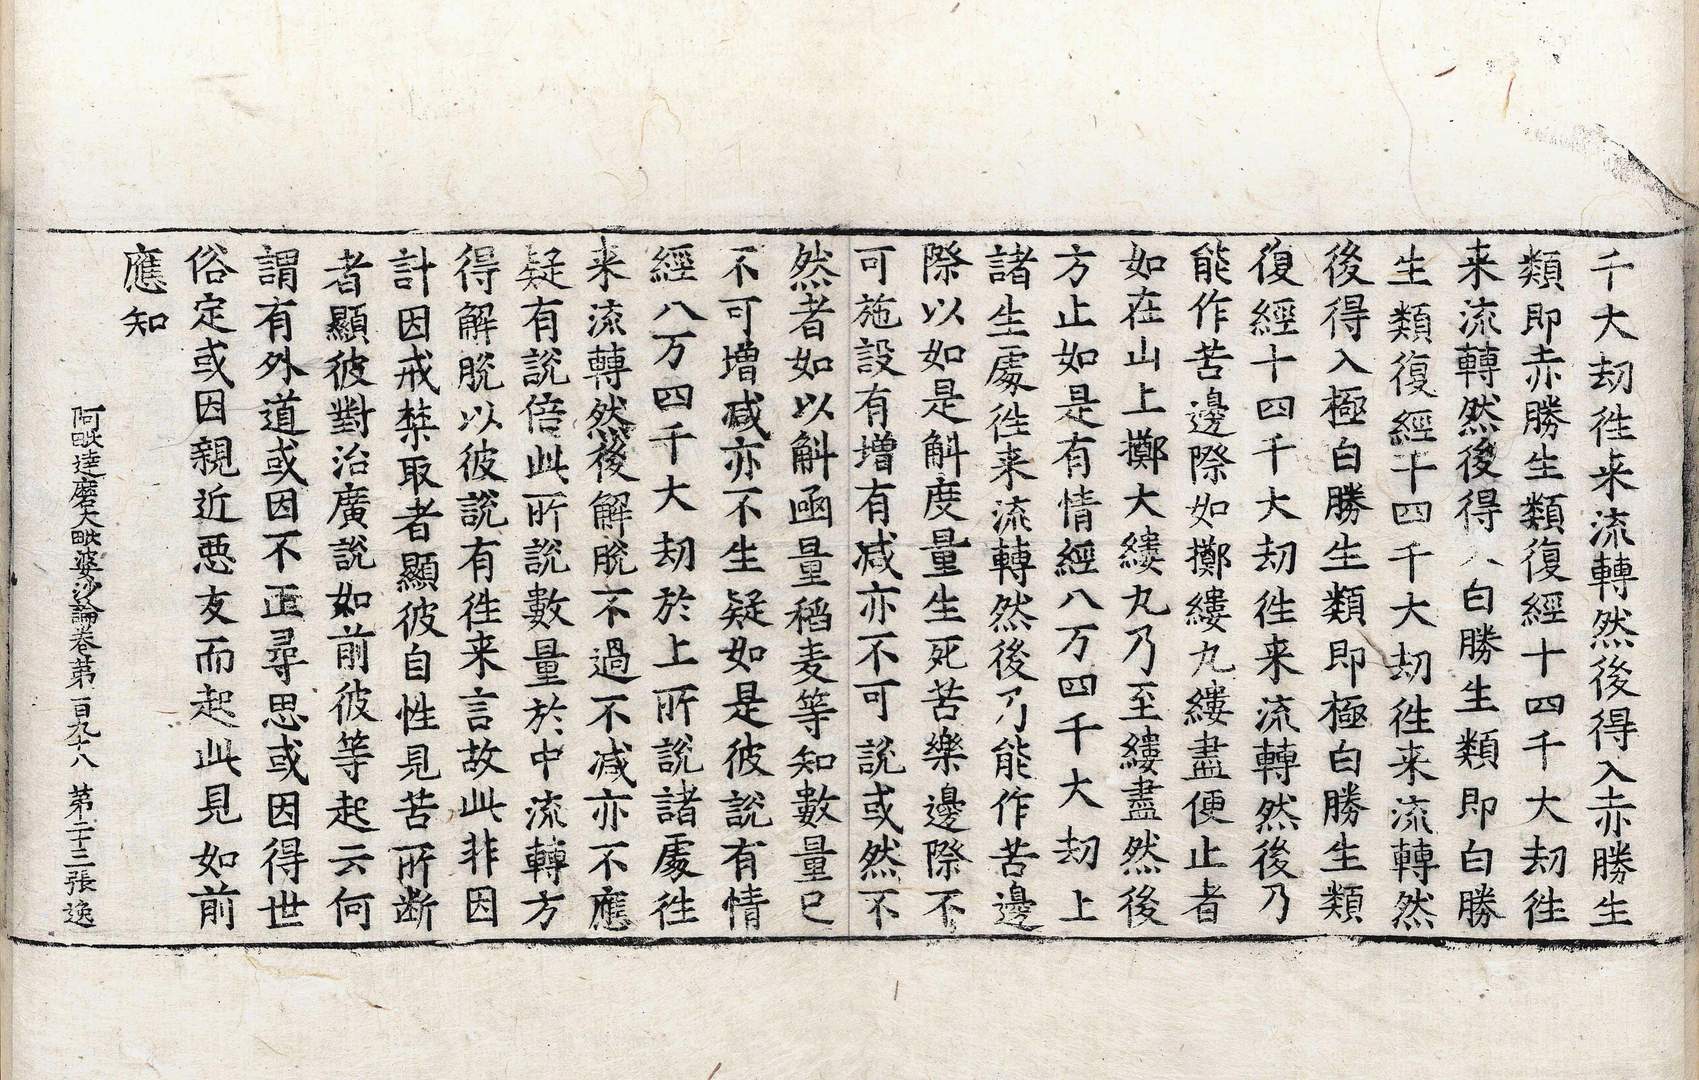 千大劫往来流轉然後得入赤勝生
類即赤勝生類復經十四千大劫往
来流轉然後得入白勝生類即白勝
生類復經十四千大劫往来流轉然
後得入極白勝生類即極白勝生類
復經十四千大劫往来流轉然後乃
能作苦邊際如擲縷丸縷盡便止者
如在山上擲大縷丸乃至縷盡然後
方止如是有情經八万四千大劫上
諸生處往来流轉然後乃能作苦邊
際以如是斛度量生死苦樂邊際不
可施設有增有减亦不可說或然不
然者如以斛函量稻麦等知數量已
不可增减亦不生疑如是彼說有情
經八万四千大劫於上所說諸處往
来流轉然後解脫不過不减亦不應
疑有說倍此所說數量於中流轉方
得解脫以彼說有往来言故此非因
計因戒禁取者顯彼自性見苦所断
者顯彼對治廣說如前彼等起云何
謂有外道或因不正尋思或因得世
俗定或因親近惡友而起此見如前
應知
阿毗達磨大毗婆沙論卷第一百九十八 第二十三張 逸